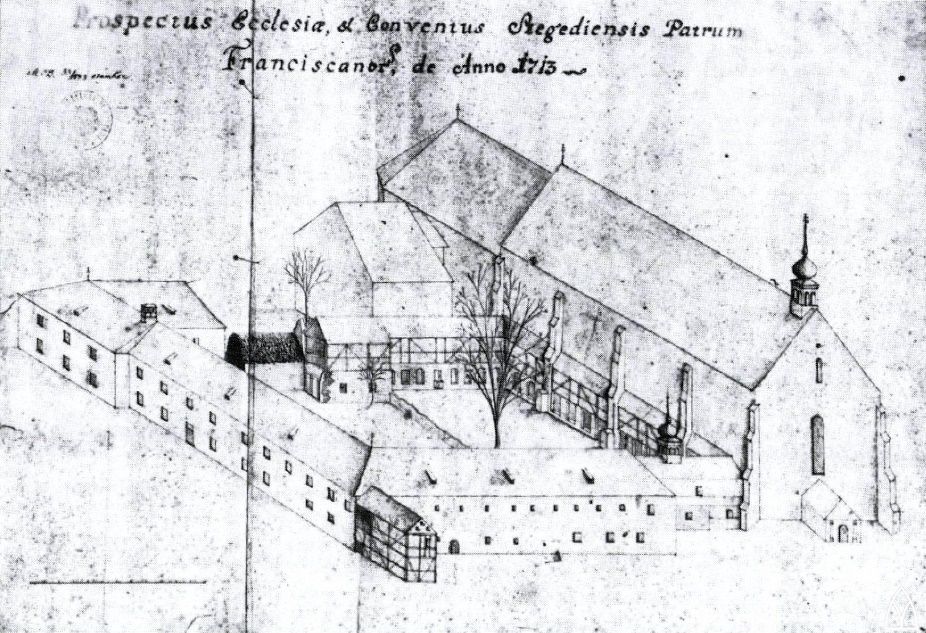 Prospectus Ecclesiæ, & Conventus Szegediensis Patrum
Franciscanor', de Anno 1713